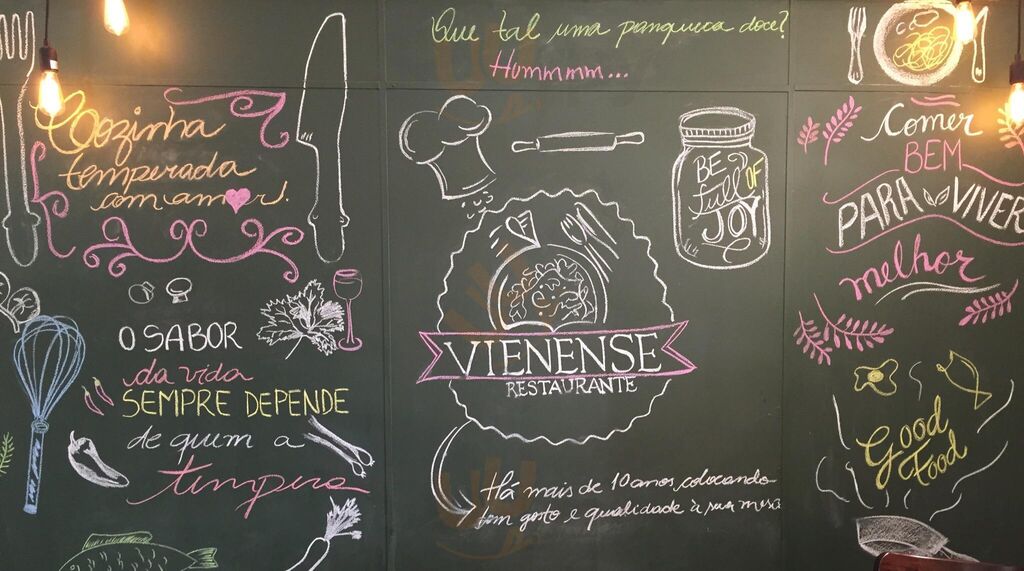 Que tal uma panqueca doce?
Hommmm...
Cozinha
temperada
com amor!
O SABOR
da vida
SEMPRE DEPENDE
de quem a
tempera
VIENENSE
RESTAURANTE
Há mais de 10 anos, colocando
bom gosto e qualidade à sua mesa
BE
full OF
JOY
Comer
BEM
PARA VIVER
melhor
Good
Food